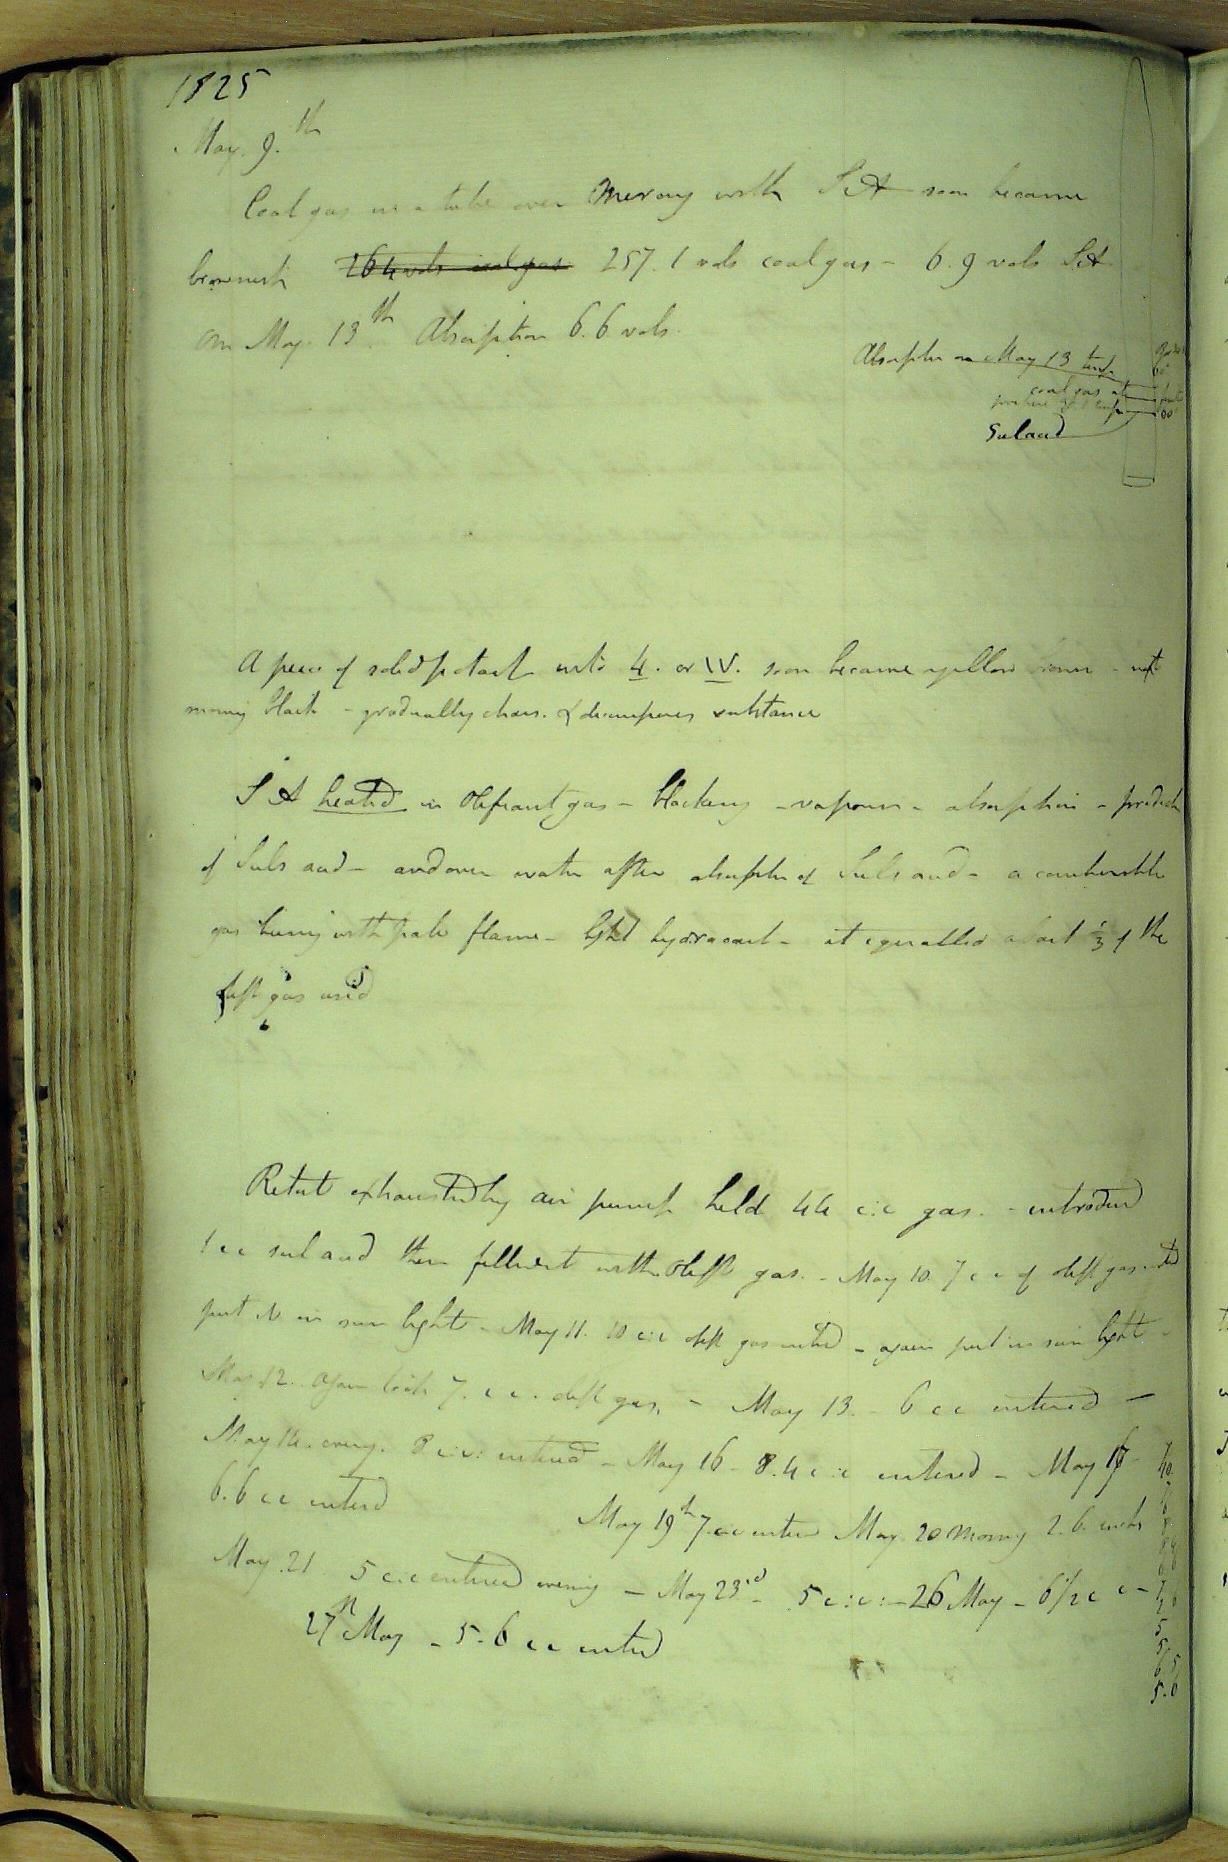 1825
May. 9.th
Coal gas in a tube over Mercury with S A soon became
brownish 264 vols coal gas 257.1 vols coal gas - 6.9 vols S A
on May. 13th Absorption 6.6 vols.
Absorption on May 13
coal gas at
Sul acid
A piece of solid potash into 4. or IV. soon became yellow brown - next
morning black - gradually chars. & decomposes substance
S A heated in Olefiant gas - blackens - vapour - absorption - product
of Suls acid - and over water after absorption of Suls acid - a combustible
gas burning with pale flame - light hydrocarb - it equalled about 1/3 of the
olefit gas used
Retort exhausted by air pump held 44 c:c gas. - introduced
1 c c sul acid then filled it with Oleft gas. - May 10. 7 c c of oleft gas entd
put it in sun light - May 11. 10 c:c oleft gas entered - again put in sun light -
May 12. Again took 7. c c. oleft gas, - May 13. - 6 c c entered -
May 14. eveng. 8 c:c: entered - May 16 - 8.4 c:c entered - May 17
6.6 c c entered May 19th 7. c:c entered May. 20 Morng 2.6. entd
May. 21 5 c:c entered evening - May 23rd - 5 c:c: - 26 May - 6 1/2 c c -
27th May - 5.6 c c entered
7
10
7
6
8
5
5
6.5
5.6